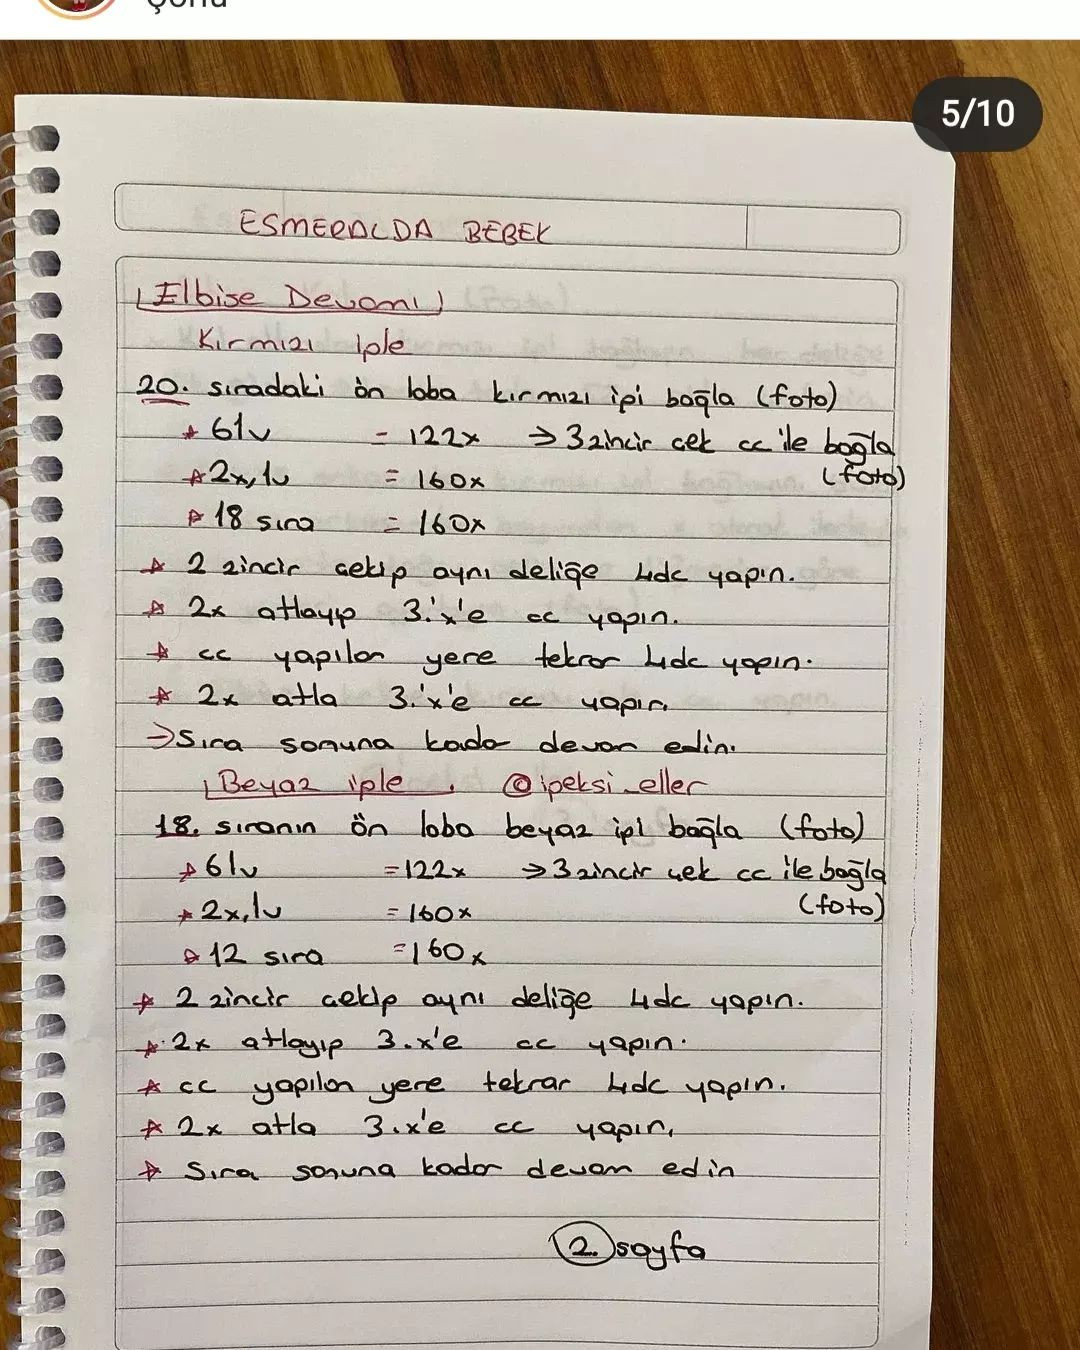 5/10
ESMERALDA BEBEK
Elbise Devamı
Kırmızı iple
20. sıradaki ön loba kırmızı ipi bağla (foto)
6lv = 122x → 3 zincir çek cc ile bağla
(foto)
2x,1v = 160x
18 sıra = 160x
2 zincir çekip aynı deliğe 4dc yapın.
2x atlayıp 3.'x'e cc yapın.
cc yapılan yere tekrar 4dc yapın.
2x atla 3.'x'e cc yapın.
→ Sıra sonuna kadar devam edin.
Beyaz iple . @ipeksi_eller
18. sıranın ön loba beyaz ipi bağla (foto)
6lv =122x → 3 zincir çek cc ile bağla
(foto)
2x,1v = 160x
12 sıra =160x
2 zincir çekip aynı deliğe 4dc yapın.
2x atlayıp 3.x'e cc yapın.
cc yapılan yere tekrar 4dc yapın.
2x atla 3.x'e cc yapın.
Sıra sonuna kadar devam edin
2. sayfa